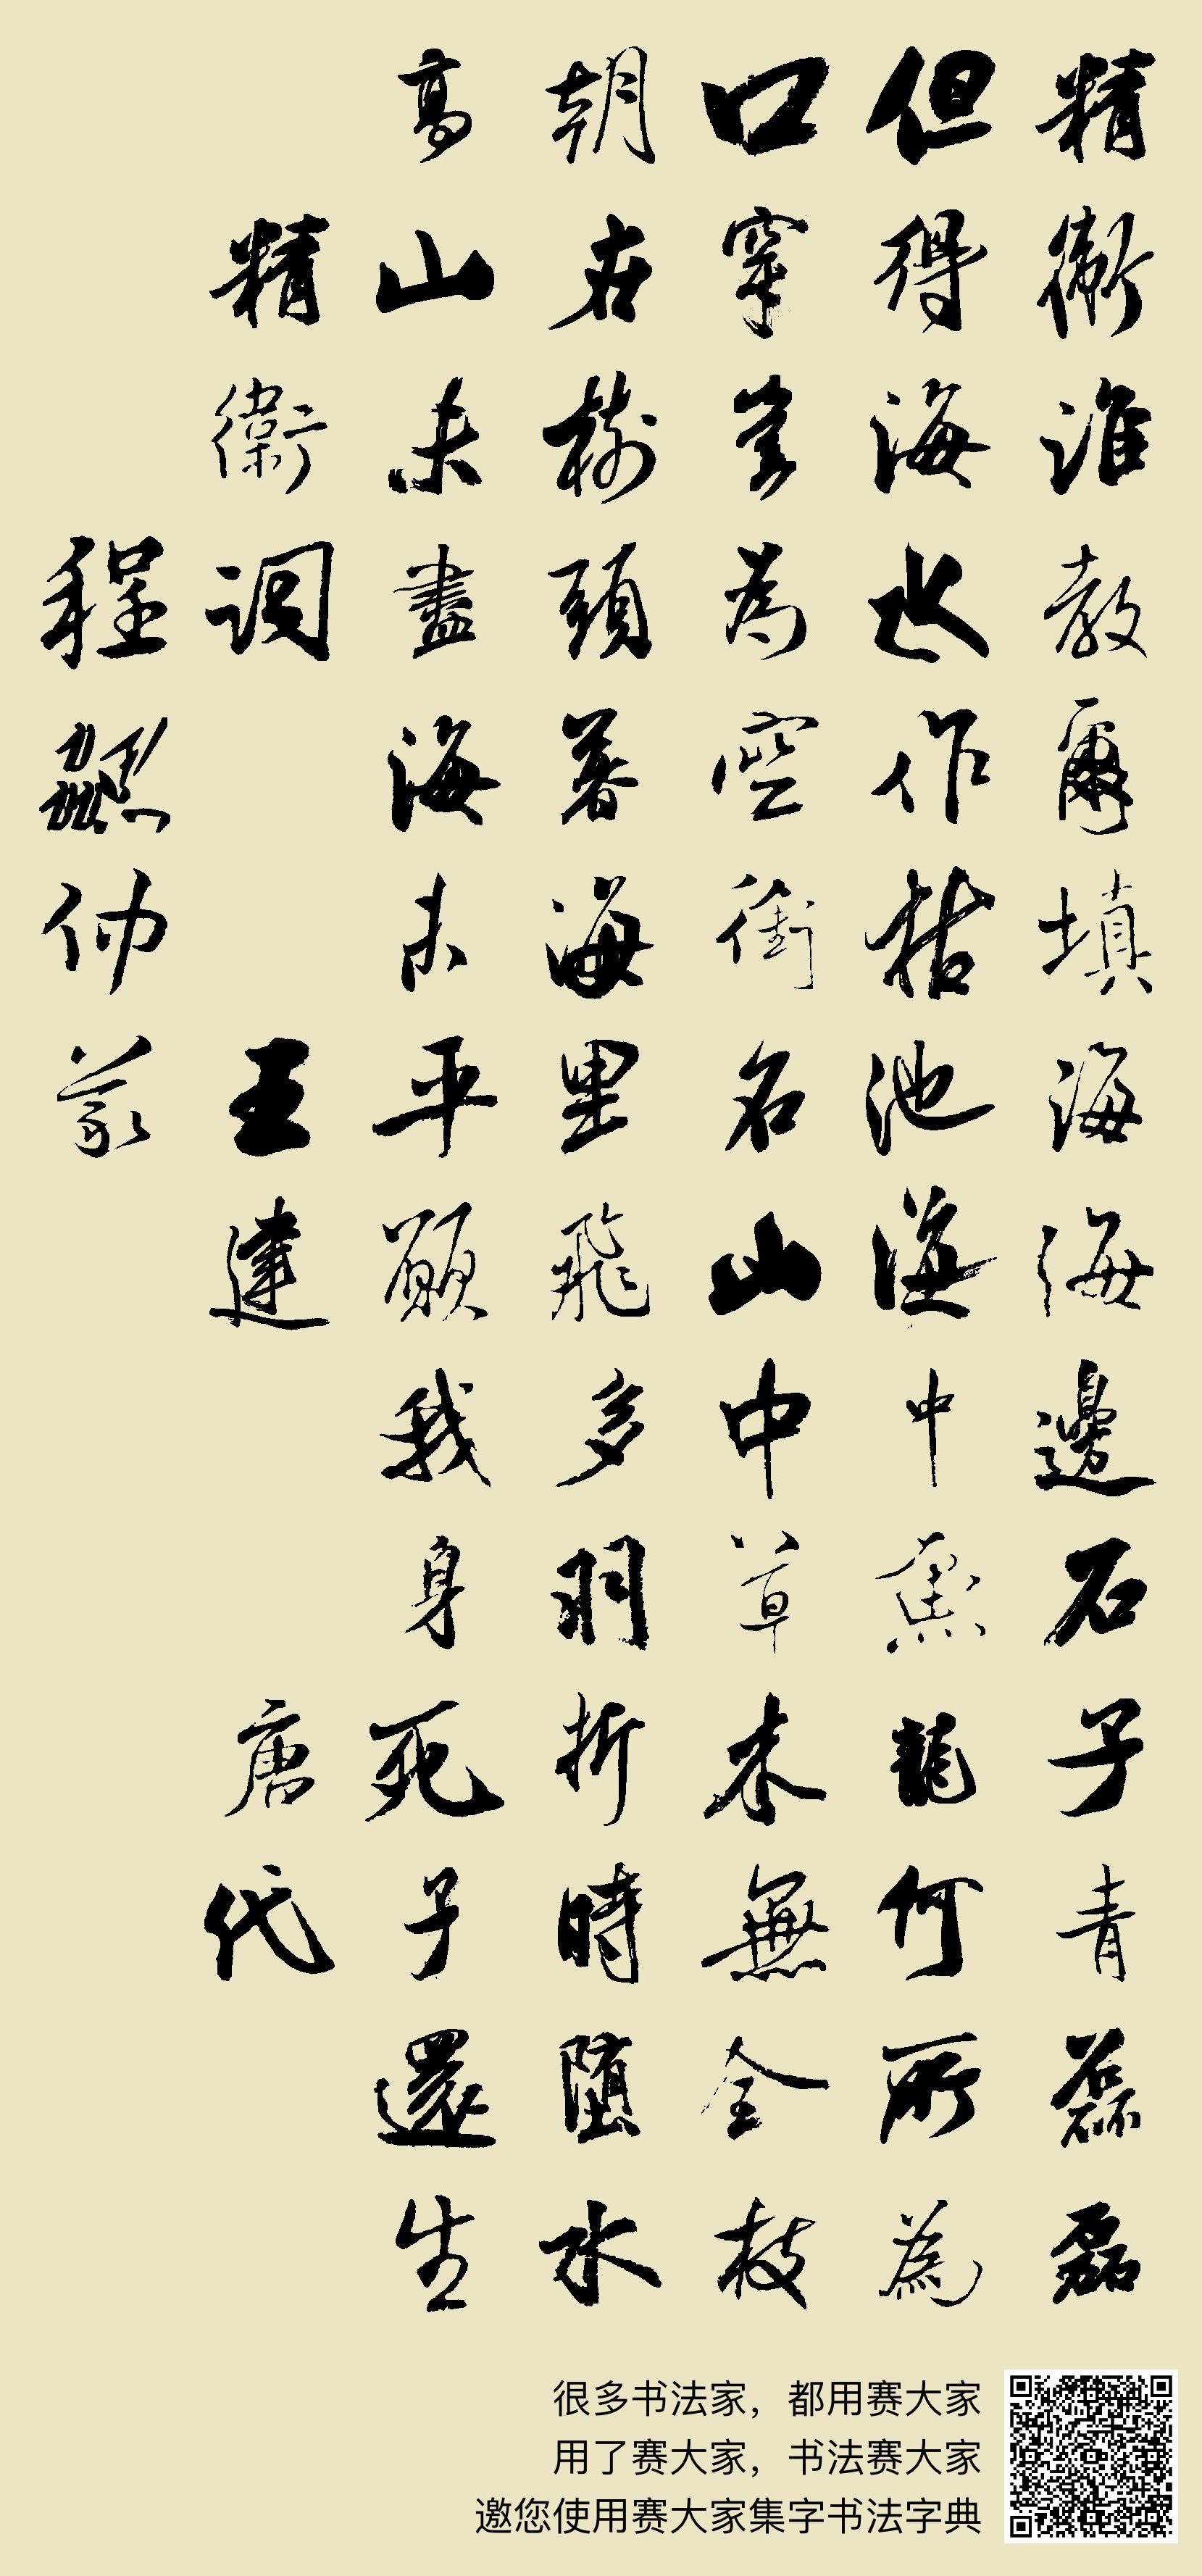 精衛誰教爾填海海邊石子青磊磊
但得海水作枯池海中魚龍何所為
口穿豈為空銜石山中草木無全枝
朝在樹頭暮海裏飛多羽折時墮水
高山未盡海未平願我身死子還生
精衛詞 王建 唐代
程仂
很多书法家，都用赛大家
用了赛大家，书法赛大家
邀您使用赛大家集字书法字典